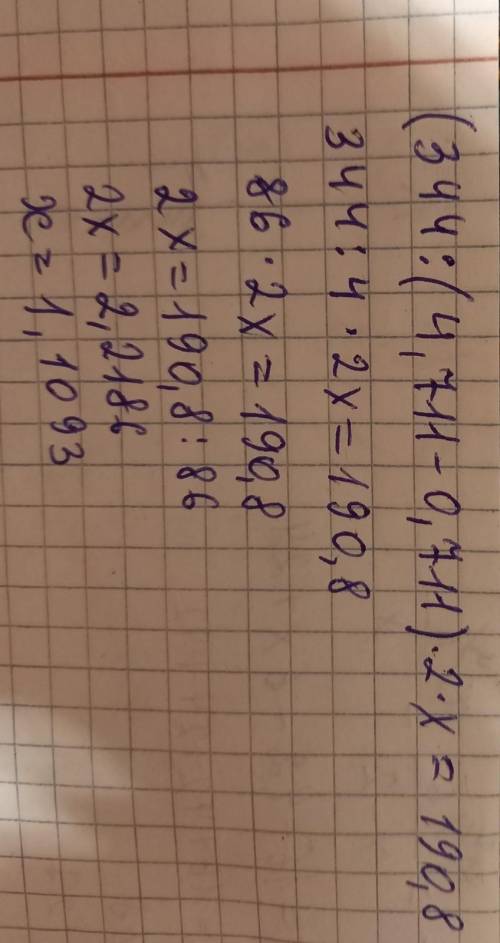 (344:(4,711-0,711)·2·x=190,8
344:4·2x=190,8
86·2x=190,8
2x=190,8:86
2x=2,2186
x=1,1093